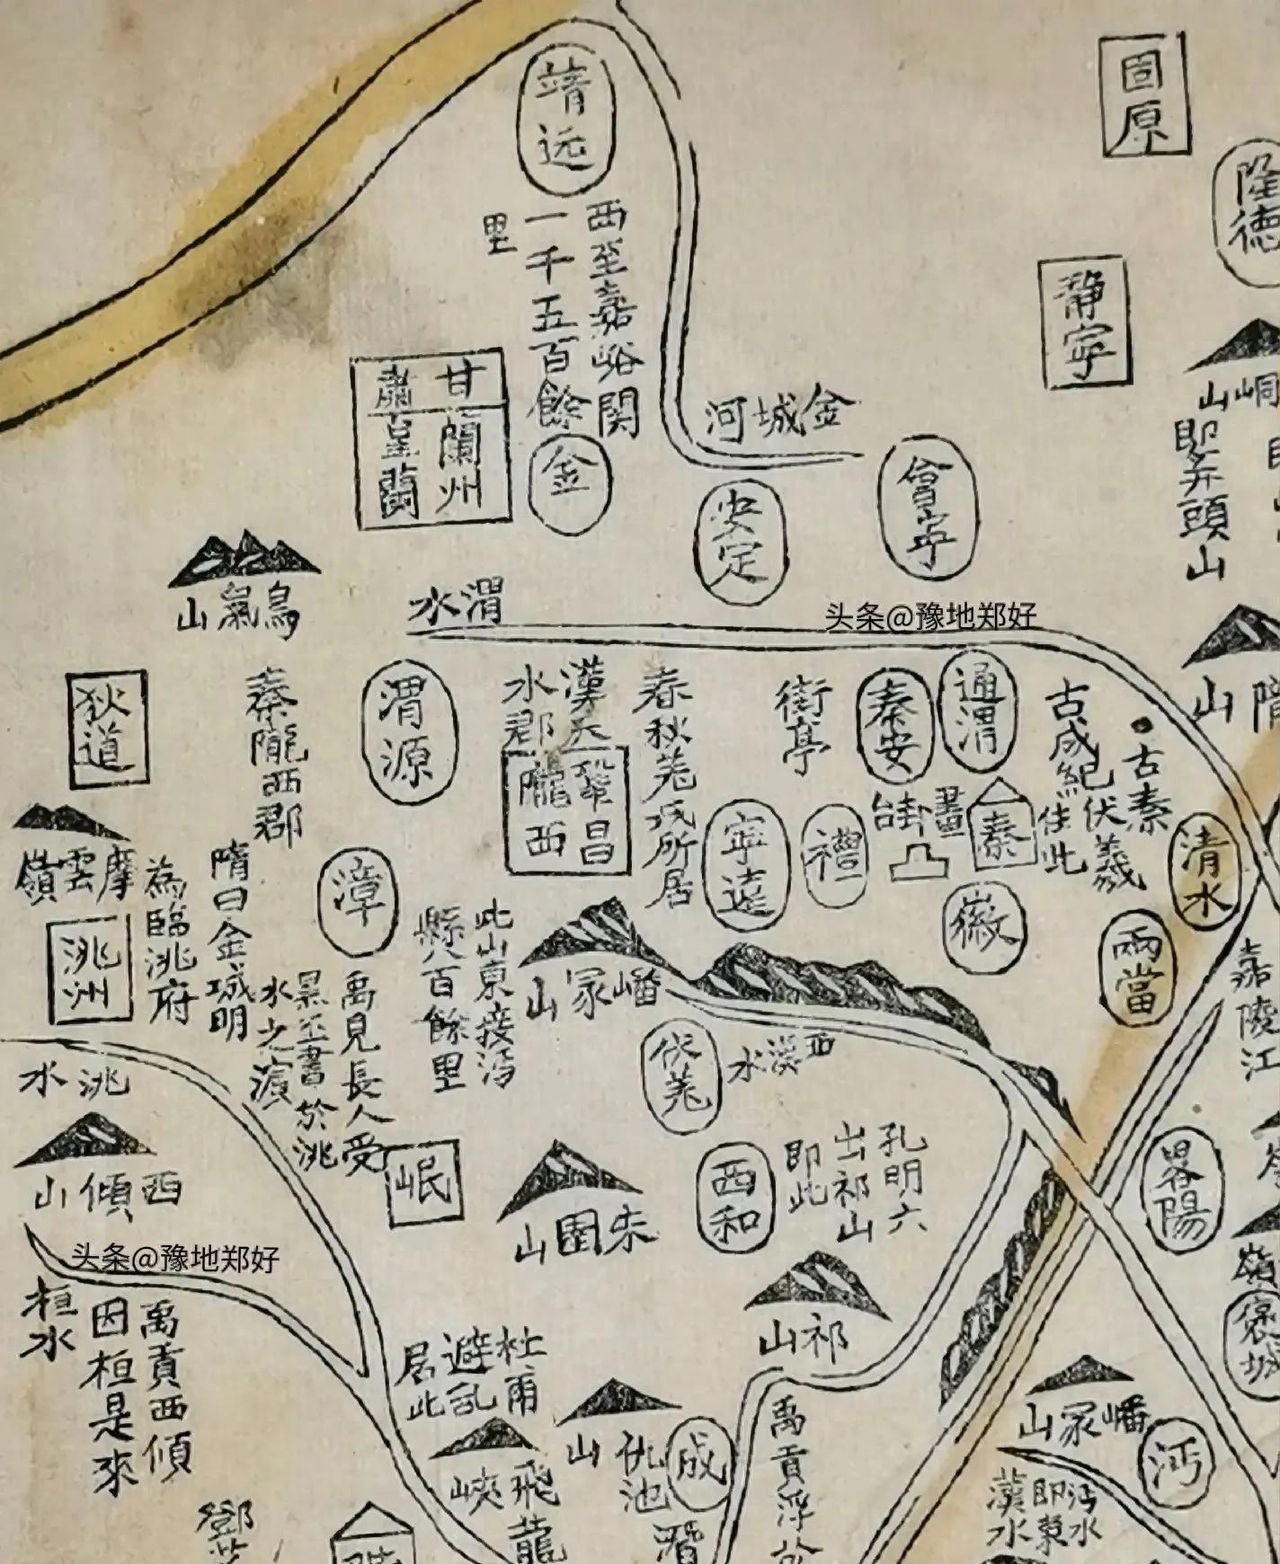 固原
隆德
靖远
西至嘉峪関
一千五百餘
里
静寧
甘肅
蘭州
皋蘭
金
金城河
安定
會寧
山
即笄頭
山
鳥鼠山
渭水
头条@豫地郑好
狄道
秦隴西郡
渭源
漢天
水郡
鞏昌
隴西
春秋羌氐所居
街亭
秦安
通渭
古成紀伏羲
住此
古秦
畫卦台
秦
清水
摩雲嶺
洮州
隋曰金城明
為臨洮府
漳
寧遠
禮
徽
兩當
禹見長人受
黑玉書於洮
水之濱
此山東接沔
縣八百餘里
嶓冢山
伏羌
西漢水
嘉陵江
洮水
西傾山
岷
朱圉山
西和
孔明六
出祁山
即此
畧陽
头条@豫地郑好
桓水
禹貢西傾
因桓是來
祁山
褒城
杜甫
避乱
居此
仇池
山
成
飛龍
峽
禹貢浮於
潛
嶓冢山
沔
沔水
即東
漢水
鄧
階